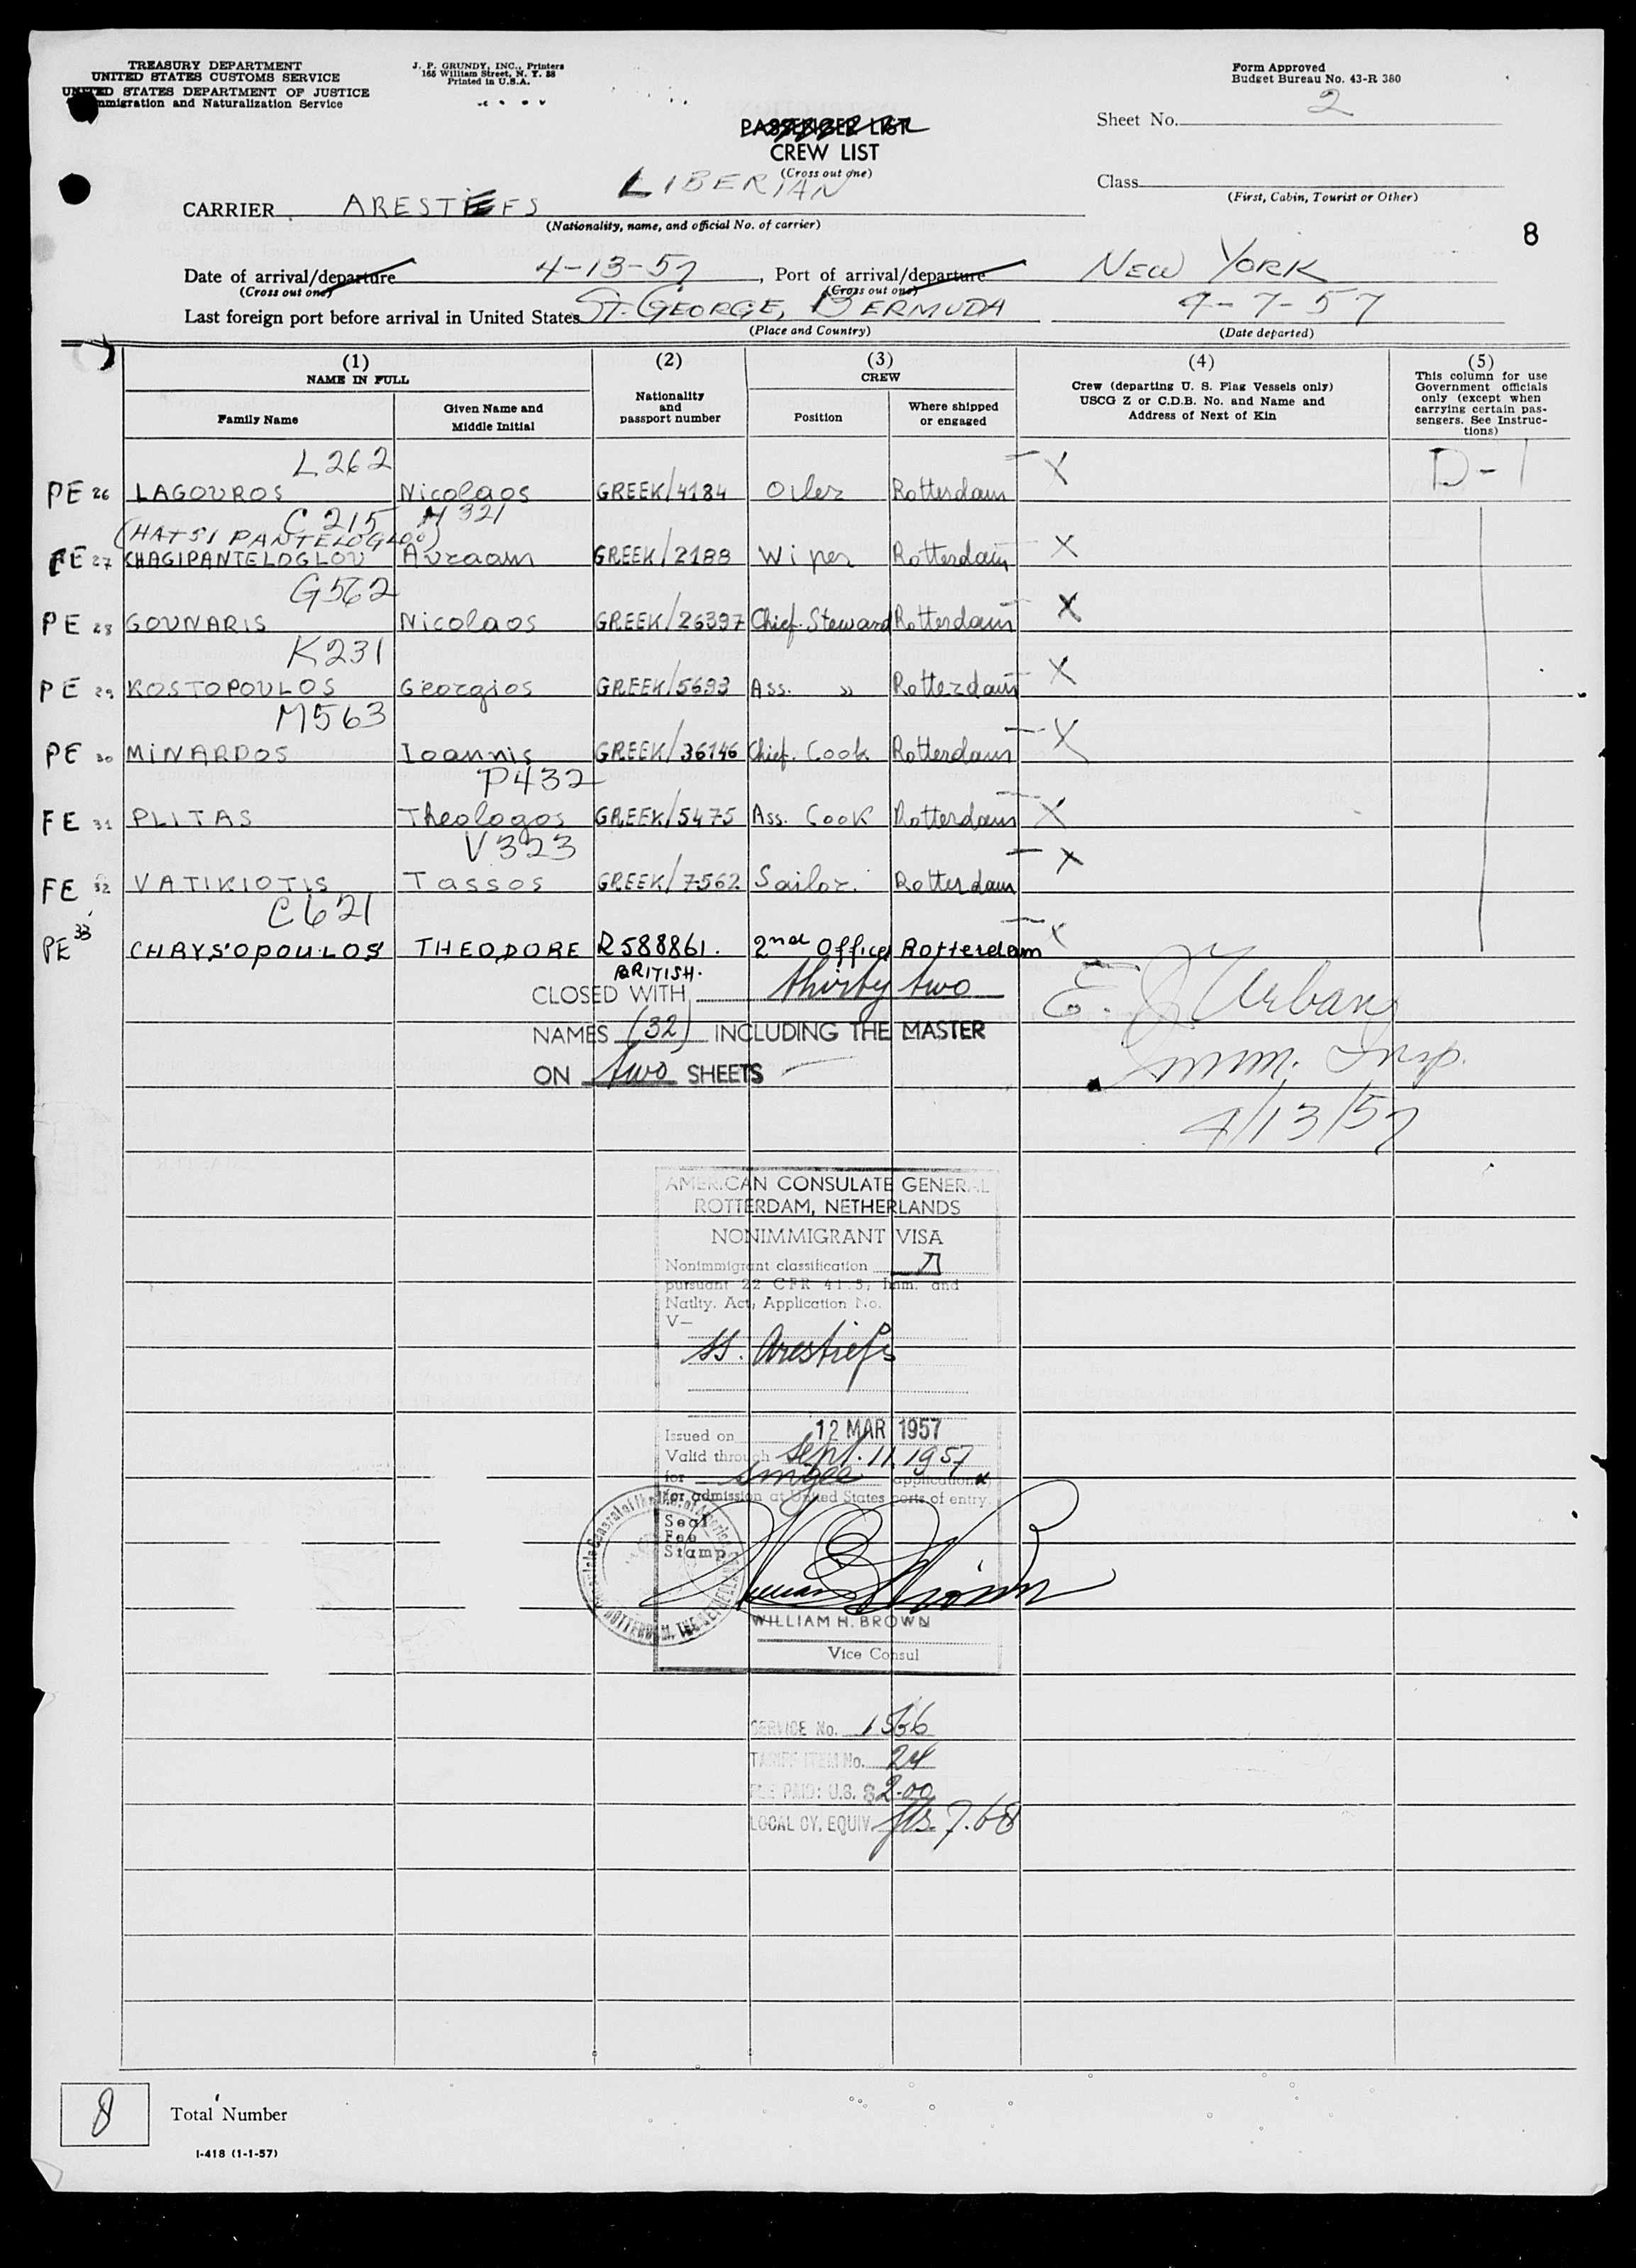 TREASURY DEPARTMENT
UNITED STATES CUSTOMS SERVICE
UNITED STATES DEPARTMENT OF JUSTICE
Immigration and Naturalization Service
J. P. GRUNDY, INC., Printers
165 William Street, N. Y. 38
Printed in U.S.A.
Form Approved
Budget Bureau No. 43-R 380
PASSENGER LIST
CREW LIST
(Cross out one)
Sheet No. 2
Class
(First, Cabin, Tourist or Other)
LIBERIAN
CARRIER ARESTIEFS
(Nationality, name, and official No. of carrier)
8
Date of arrival/departure 4-13-57, Port of arrival/departure NEW YORK
(Cross out one) (Cross out one)
Last foreign port before arrival in United States ST. GEORGE, BERMUDA 4-7-57
(Place and Country) (Date departed)
(1) (2) (3) (4) (5)
NAME IN FULL
Family Name
Given Name and Middle Initial
Nationality and passport number
CREW
Position
Where shipped or engaged
Crew (departing U. S. Flag Vessels only)
USCG Z or C.D.B. No. and Name and
Address of Next of Kin
This column for use
Government officials
only (except when
carrying certain pas-
sengers. See Instruc-
tions)
L262
PE 26 LAGOUROS Nicolaos GREEK/4184 Oiler Rotterdam X D-1
C215 H321
(HATSI PANTELOGLOO)
FE 27 CHAGIPANTELOGLOU Avraam GREEK/2188 Wiper Rotterdam X
G562
PE 28 GOUNARIS Nicolaos GREEK/26397 Chief. Steward Rotterdam X
K231
PE 29 KOSTOPOULOS Georgios GREEK/5693 Ass. " Rotterdam X
M563
PE 30 MINARDOS Ioannis GREEK/36146 Chief. Cook Rotterdam X
P432
FE 31 PLITAS Theologos GREEK/5475 Ass. Cook Rotterdam X
V323
FE 32 VATIKIOTIS Tassos GREEK/7562 Sailor. Rotterdam X
C621
PE 33 CHRYSOPOULOS THEODORE R588861. 2nd Officer Rotterdam X
BRITISH.
CLOSED WITH thirty two
NAMES (32) INCLUDING THE MASTER
ON two SHEETS
E. J. Urban
Imm. Insp.
4/13/57
AMERICAN CONSULATE GENERAL
ROTTERDAM, NETHERLANDS
NONIMMIGRANT VISA
Nonimmigrant classification D
pursuant 22 CFR 41.5; Imm. and
Natlty. Act, Application No.
V—
SS. Arestiefs
Issued on 12 MAR 1957
Valid through Sept. 11, 1957
for single application
for admission at United States ports of entry.
Seal
Fee
Stamp
WILLIAM H. BROWN
Vice Consul
SERVICE No. 1566
TARIFF ITEM No. 24
FEE PAID: U.S. $ 2.00
LOCAL CY. EQUIV. fls. 7.68
8
Total Number
I-418 (1-1-57)